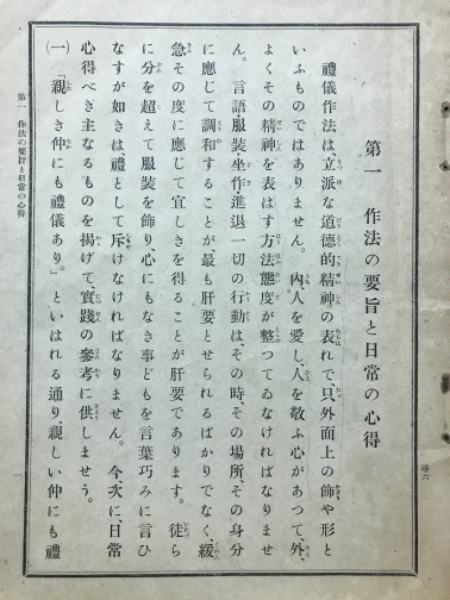 第一　作法の要旨と日常の心得
禮儀作法は、立派な道德的精神の表れで、只、外面上の飾や形と
いふものではありません。內、人を愛し、人を敬ふ心があつて、外、
よくその精神を表はす方法態度が整つてゐなければなりませ
ん。言語・服裝・坐作・進退一切の行動は、その時、その場所、その身分
に應じて調和することが、最も肝要とせられるばかりでなく、緩
急その度に應じて宜しきを得ることが肝要であります。徒ら
に分を超えて服裝を飾り、心にもなき事どもを言葉巧みに言ひ
なすが如きは、禮として斥けなければなりません。今、次に、日常
心得べき主なるものを揭げて、實踐の參考に供しませう。
(一)「親しき仲にも禮儀あり。」といはれる通り、親しい仲にも禮
第一　作法の要旨と日常の心得
一